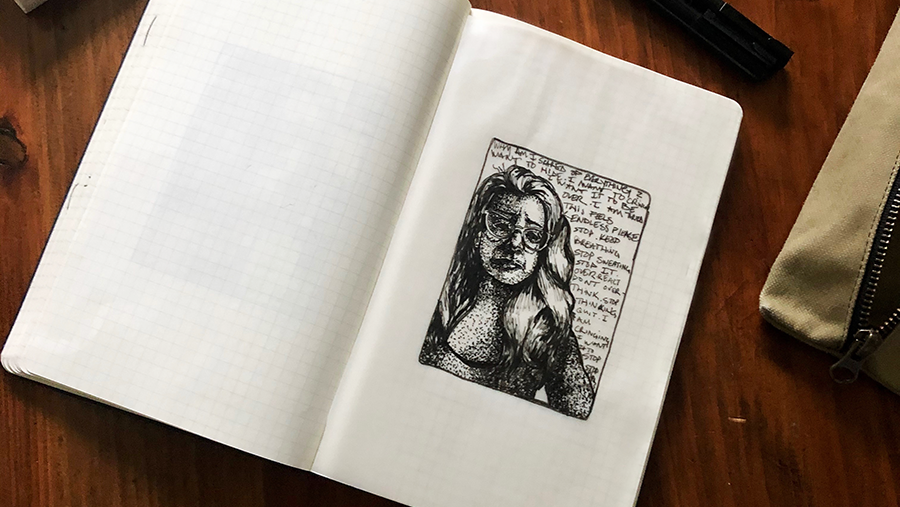 WHY AM I SCARED OF EVERYTHING? I
WANT TO HIDE. I WANT TO
I WANT IT TO BE
OVER. I AM
THIS FEELS
ENDLESS PLEASE
STOP. KEEP
BREATHING
STOP SWEATING
STOP IT.
OVERREACT
DON'T OVER-
THINK. STOP
THINKING
QUIT. I
AM
CRINGING
I WANT
IT TO
STOP
STOP